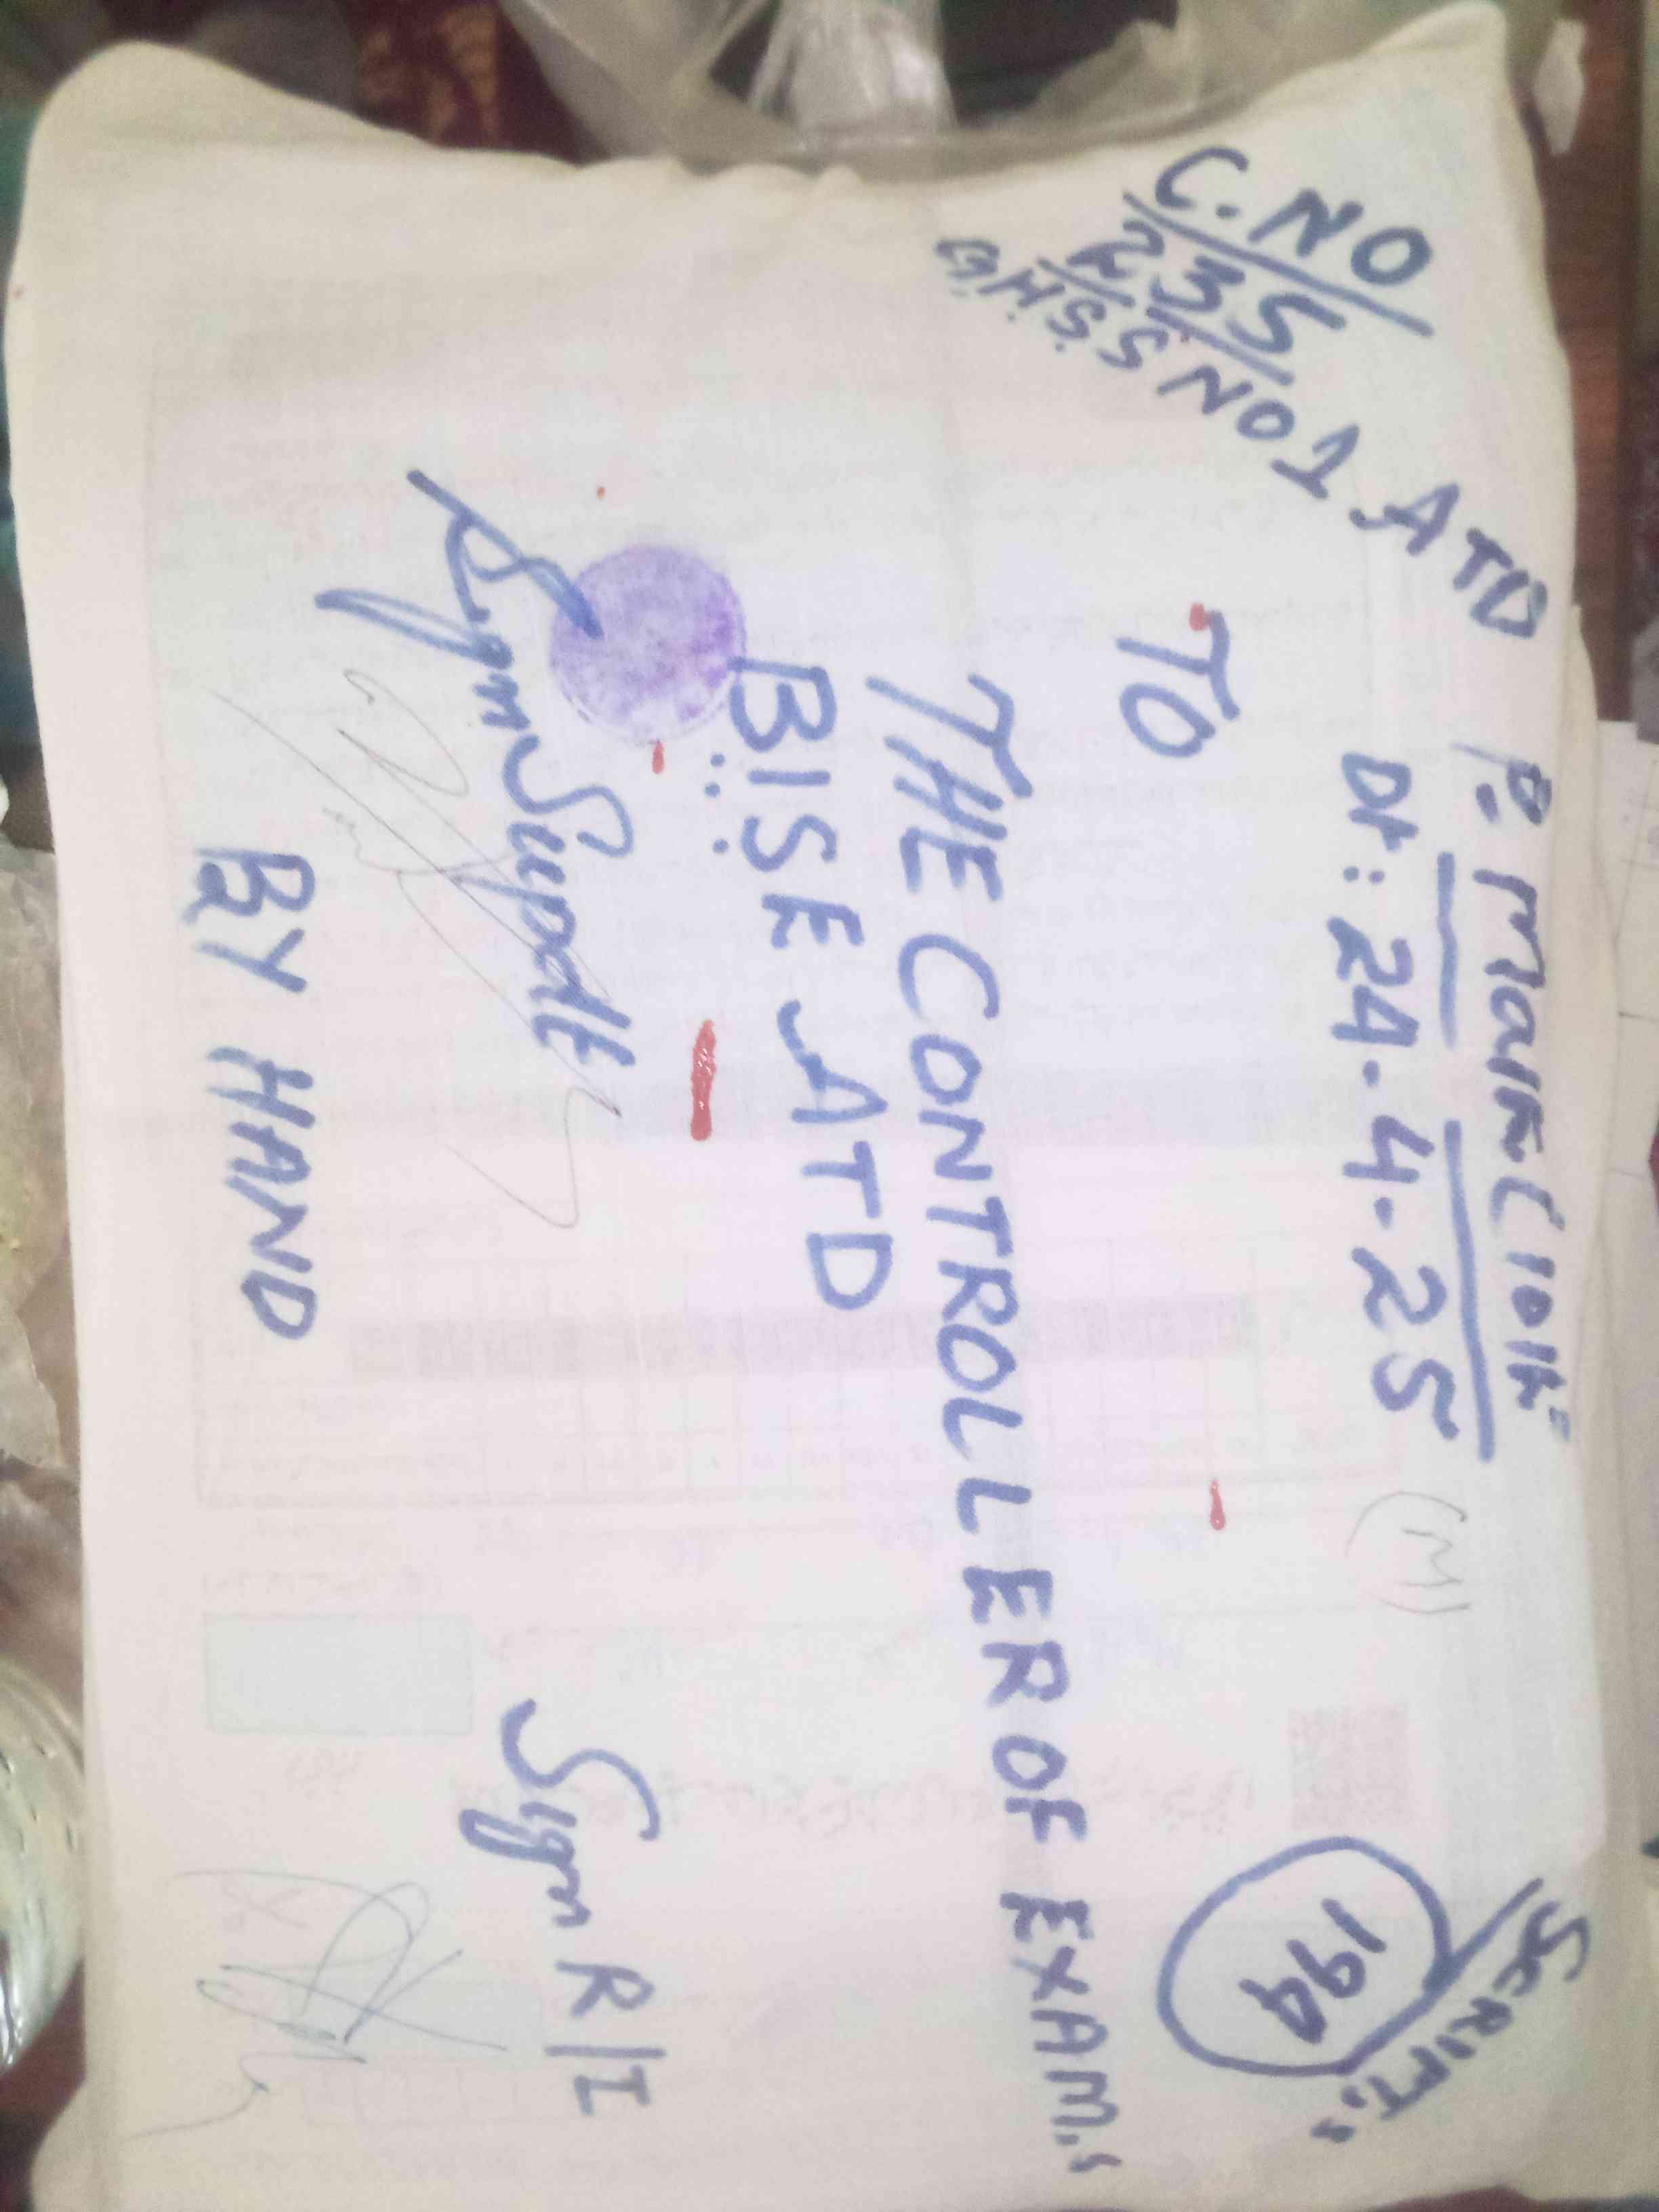 C.NO
235
G.H.S.S NO 1 ATD
P. Math (10th
Dt: 24.4.25
(M)
SCRIPT.s
194
TO
THE CONTROLLER OF EXAM.s
BISE ATD
Sign Supdt
Sign R/I
BY HAND